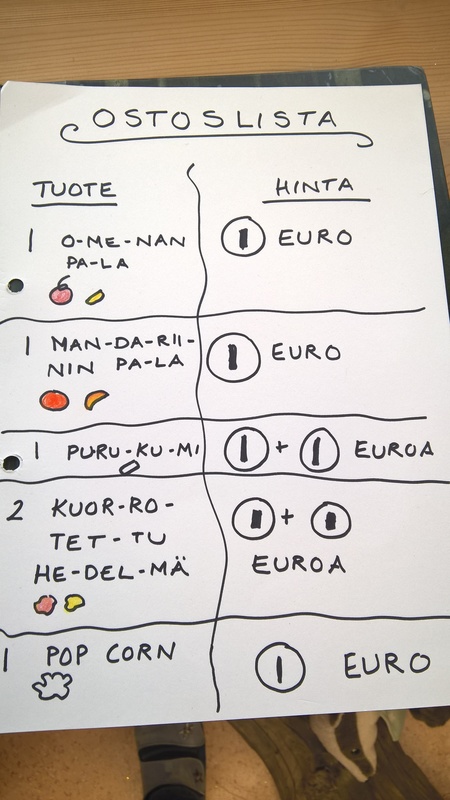 OSTOSLISTA
TUOTE
HINTA
1 O-ME-NAN
PA-LA
1 EURO
1 MAN-DA-RII-
NIN PA-LA
1 EURO
1 PURU-KU-MI
1 + 1 EUROA
2 KUOR-RO-
TET-TU
HE-DEL-MÄ
1 + 1
EUROA
1 POP CORN
1 EURO